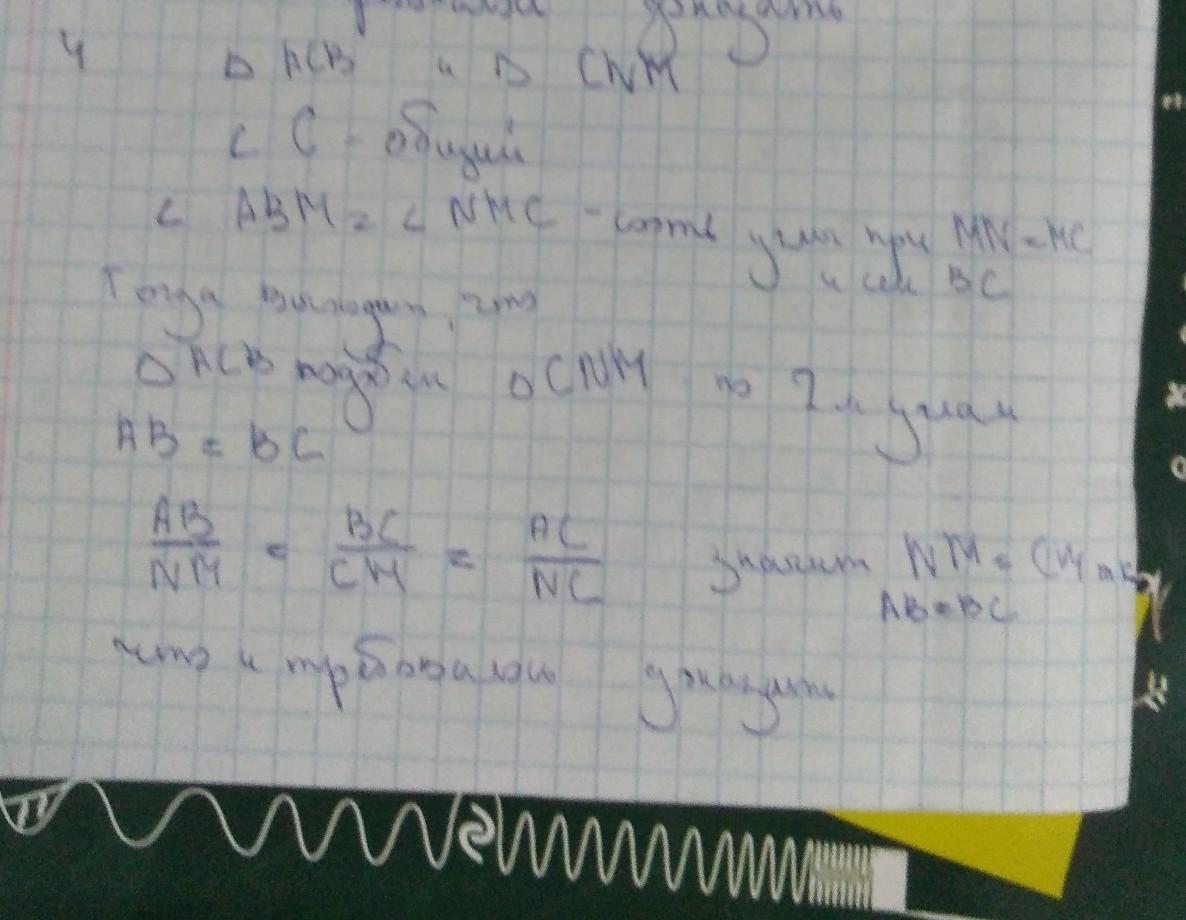 доказать
4 Δ ACB и Δ CNM
∠ C - общий
∠ ABM = ∠ NMC - соотв углы при MN = MC
и сек BC
Тогда выходит, что
Δ ACB подобен Δ CNM по 2м углам
AB = BC
AB/NM = BC/CM = AC/NC значит NM = CM т.к
AB = BC
что и требовалось доказать